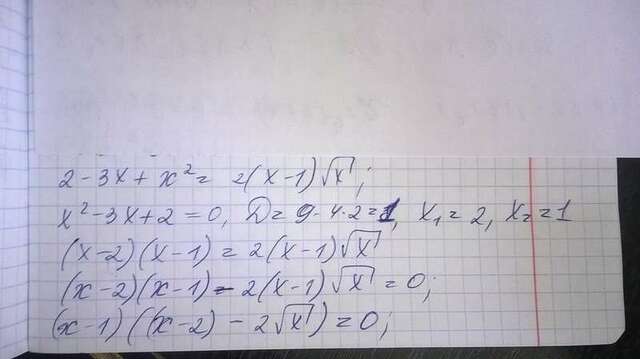 2 - 3x + x² = 2(x-1)√x;
x² - 3x + 2 = 0, D = 9 - 4·2 = 1, x₁ = 2, x₂ = 1
(x-2)(x-1) = 2(x-1)√x
(x-2)(x-1) - 2(x-1)√x = 0;
(x-1)((x-2) - 2√x) = 0;